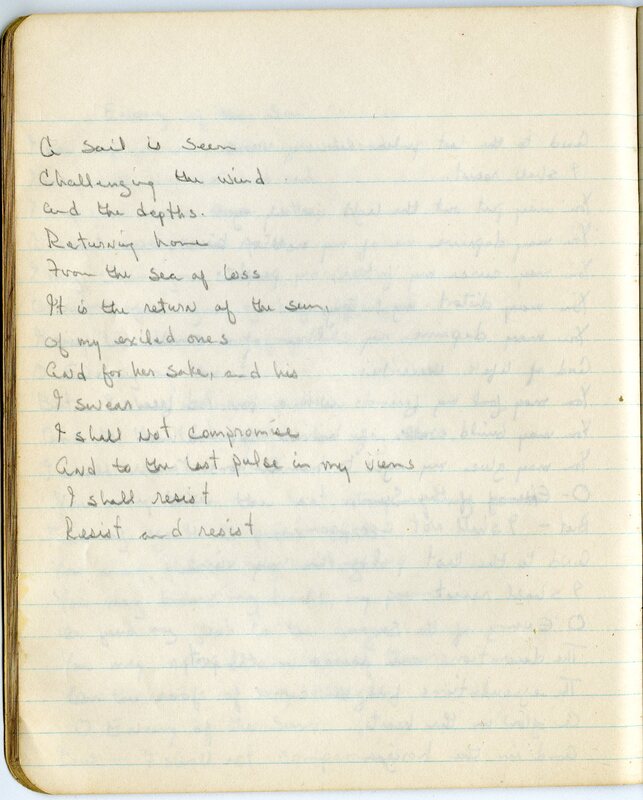 A sail is seen
Challenging the wind
and the depths.
Returning home
From the sea of loss
It is the return of the sun,
Of my exiled ones
And for her sake, and his
I swear
I shall not compromise
And to the last pulse in my viens
I shall resist
Resist and resist